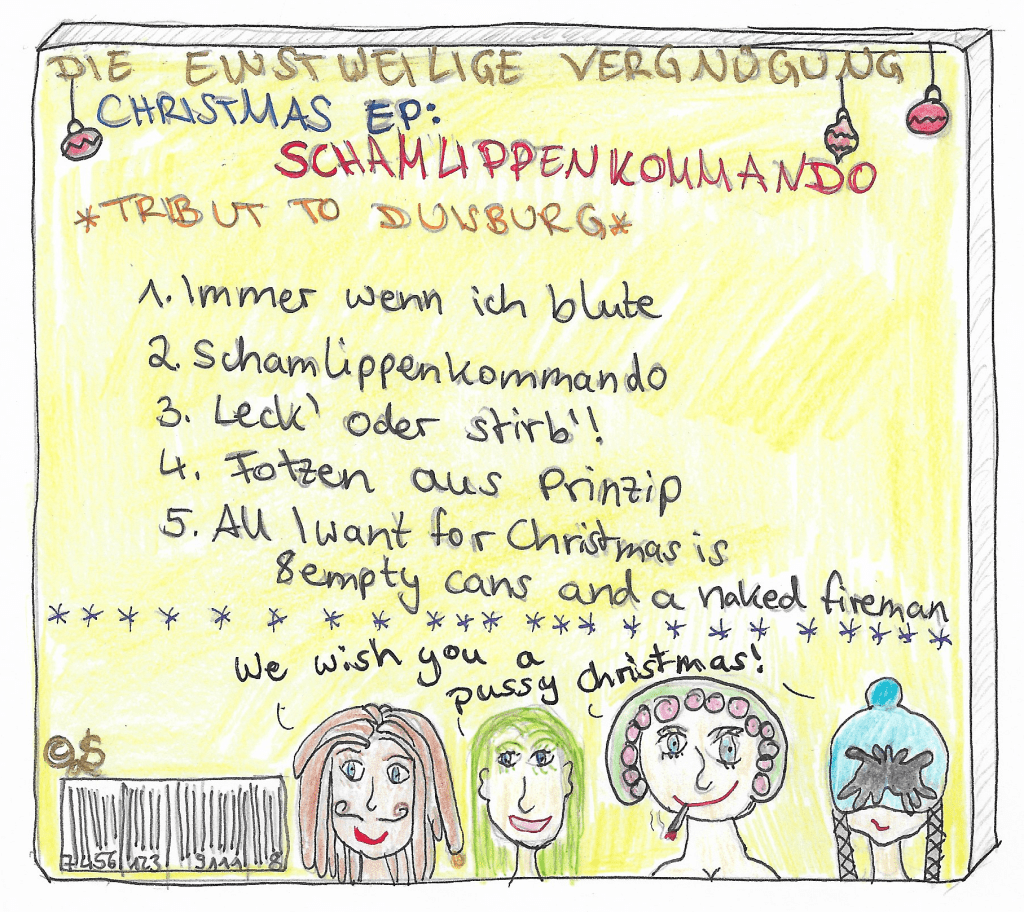 DIE EINSTWEILIGE VERGNÜGUNG
CHRISTMAS EP:
SCHAMLIPPENKOMMANDO
*TRIBUT TO DUISBURG*
1. Immer wenn ich blute
2. Schamlippenkommando
3. Leck' oder stirb'!
4. Fotzen aus Prinzip
5. All I want for Christmas is
8 empty cans and a naked fireman
* * * * * * * * * * * * * * * * * * * * * * * *
We wish you a
pussy christmas!
©$
7456 123 9111 8